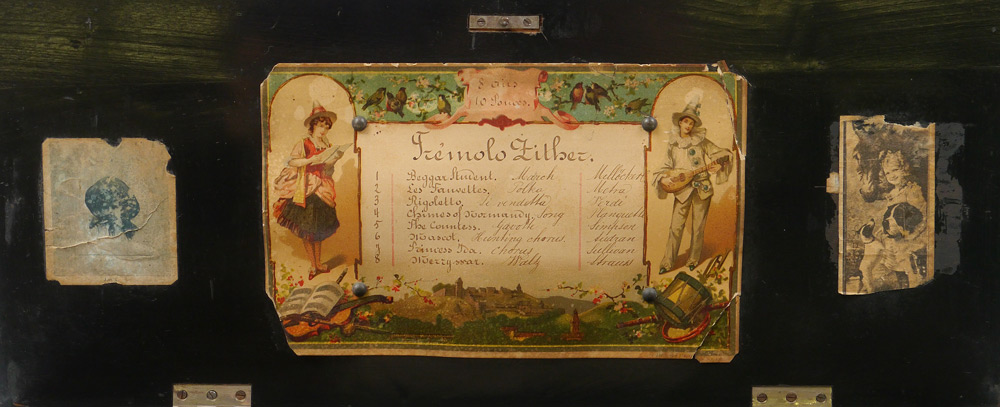 8 airs
10 Pouces.
Trémolo Zither.
1 Beggar Student, March Millöcker
2 Les Fauvettes, Polka Metra
3 Rigoletto, Verdi
4 Chimes of Normandy, Song Planquette
5 The Countess, Gavotte Simpson
6 Mascot, Hunting chorus, Audran
7 Princess Ida, Chorus Sullivan
8 Merry war, Waltz Strauss